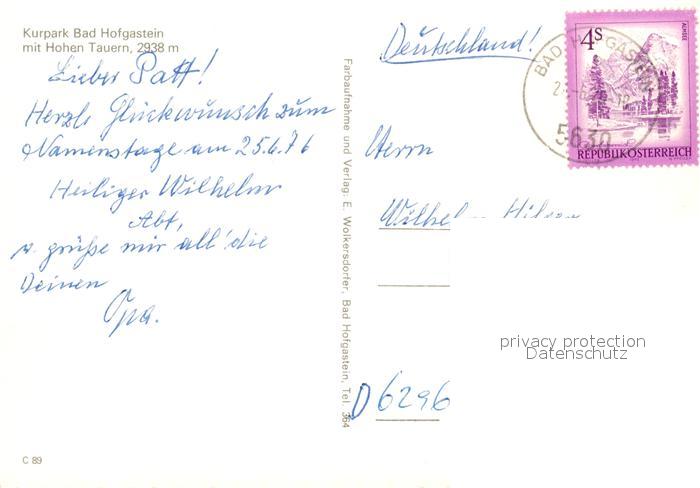 Kurpark Bad Hofgastein
mit Hohen Tauern, 2938 m
Lieber Patt!
Herzl. Glückwunsch zum
Namenstage am 25.6.76
Heiliger Wilhelm
Abt,
u. grüße mir all' die
Deinen
Opa.
C 89
Farbaufnahme und Verlag: E. Wolkersdorfer, Bad Hofgastein, Tel. 364
Deutschland!
Herrn
D 6296
4S
ALMSEE
REPUBLIK ÖSTERREICH
BAD HOFGASTEIN
5630
privacy protection
Datenschutz